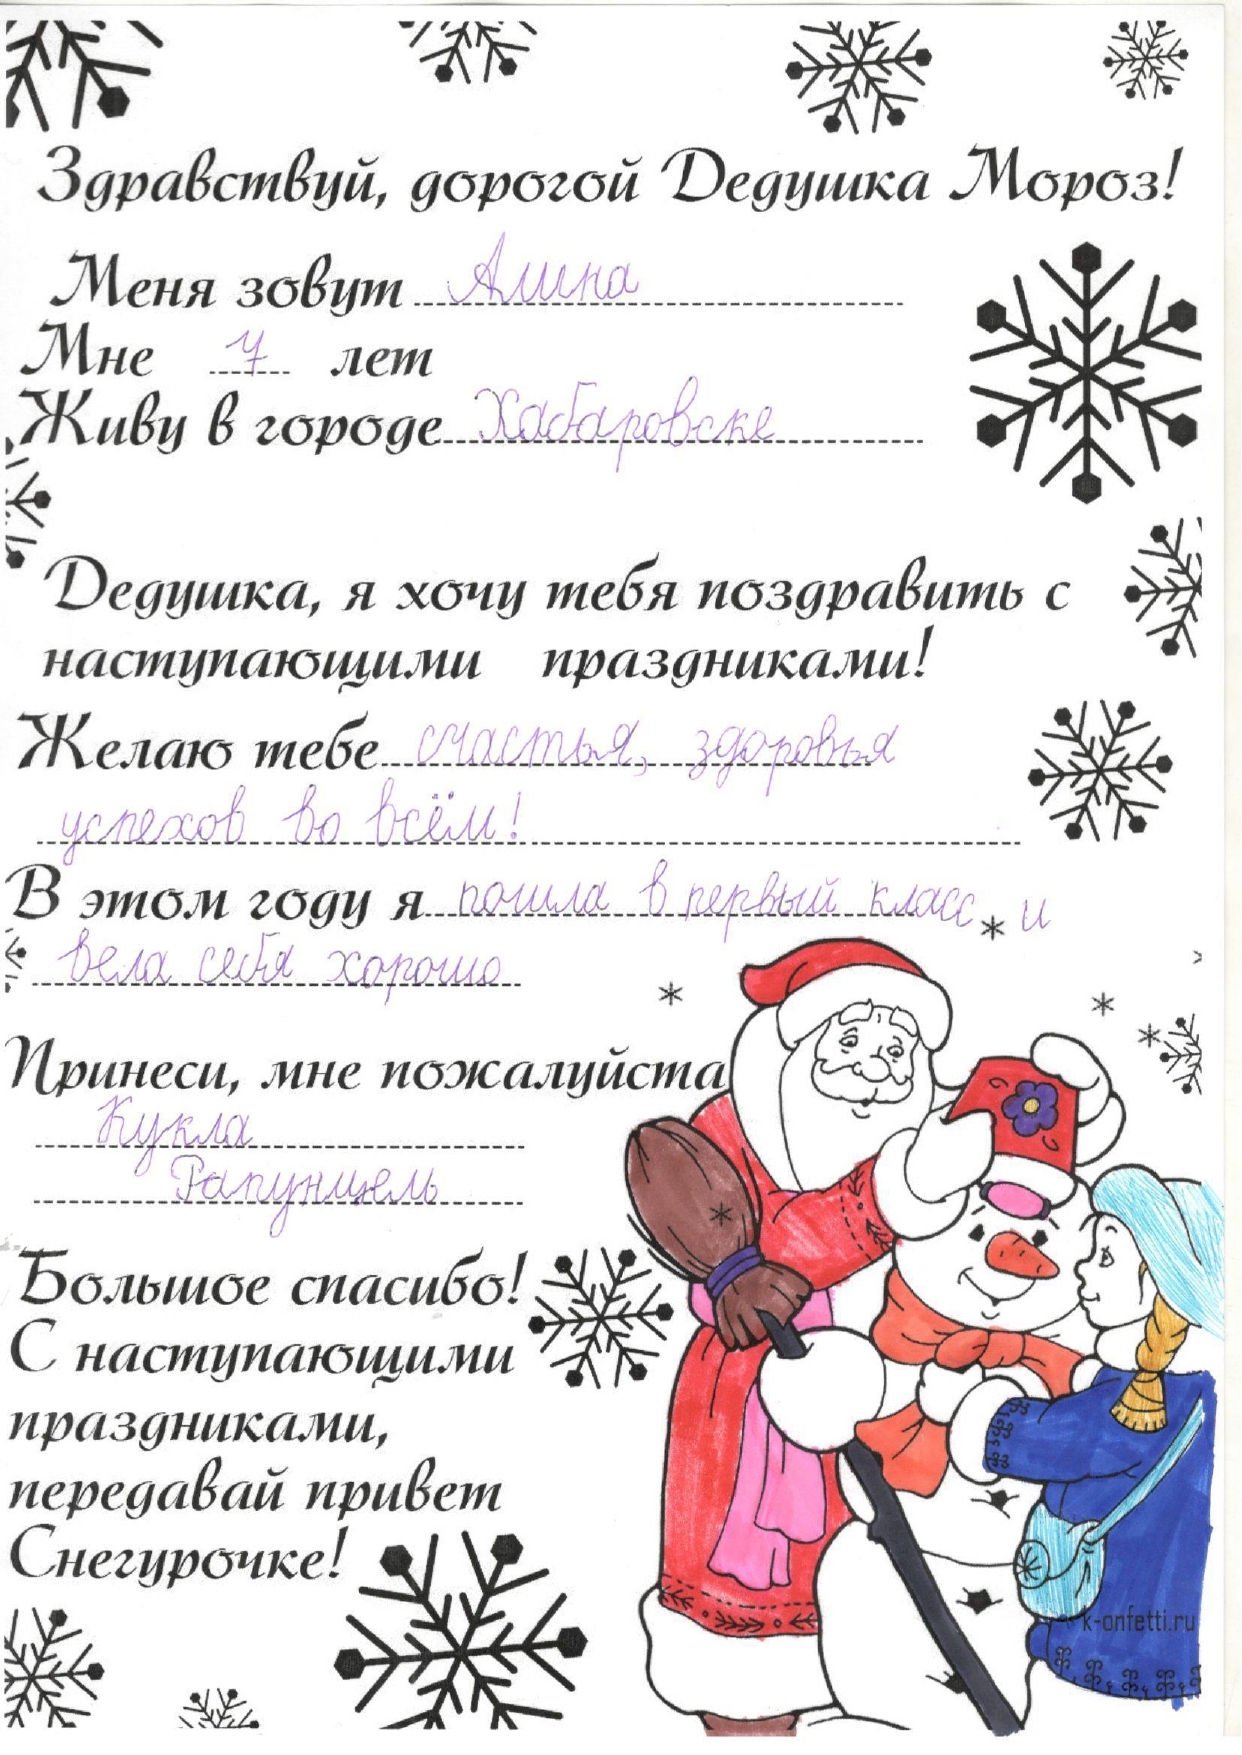 Здравствуй, дорогой Дедушка Мороз!
Меня зовут Алина
Мне 7 лет
Живу в городе Хабаровске
Дедушка, я хочу тебя поздравить с
наступающими праздниками!
Желаю тебе счастья, здоровья
успехов во всём!
В этом году я пошла в первый класс и
вела себя хорошо
Принеси, мне пожалуйста
Кукла
Рапунцель
Большое спасибо!
С наступающими
праздниками,
передавай привет
Снегурочке!
k-onfetti.ru